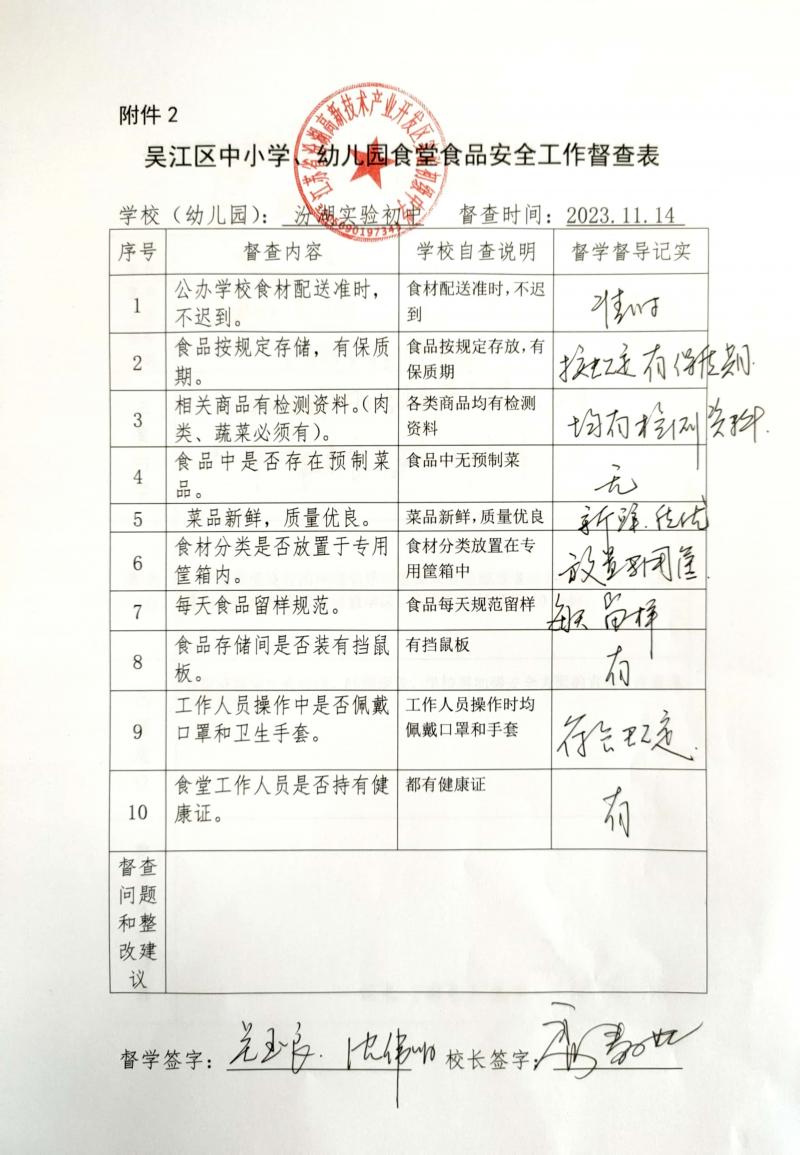 附件2
江苏省汾湖高新技术产业开发区实验初级中学
吴江区中小学、幼儿园食堂食品安全工作督查表
学校（幼儿园）： 汾湖实验初中 督查时间：2023.11.14
序号 督查内容 学校自查说明 督学督导记实
1 公办学校食材配送准时， 食材配送准时，不迟 准时
不迟到。 到
2 食品按规定存储，有保质 食品按规定存放，有 按规定有保质期.
期。 保质期
3 相关商品有检测资料。（肉 各类商品均有检测 均有检测资料.
类、蔬菜必须有）。 资料
4 食品中是否存在预制菜 食品中无预制菜 无
品。
5 菜品新鲜，质量优良。 菜品新鲜，质量优良 新鲜.质优
6 食材分类是否放置于专用 食材分类放置在专 放置专用筐.
筐箱内。 用筐箱中
7 每天食品留样规范。 食品每天规范留样 每天留样
8 食品存储间是否装有挡鼠 有挡鼠板 有
板。
9 工作人员操作中是否佩戴 工作人员操作时均 符合规定.
口罩和卫生手套。 佩戴口罩和手套
10 食堂工作人员是否持有健 都有健康证 有
康证。
督查
问题
和整
改建
议
督学签字： 校长签字：